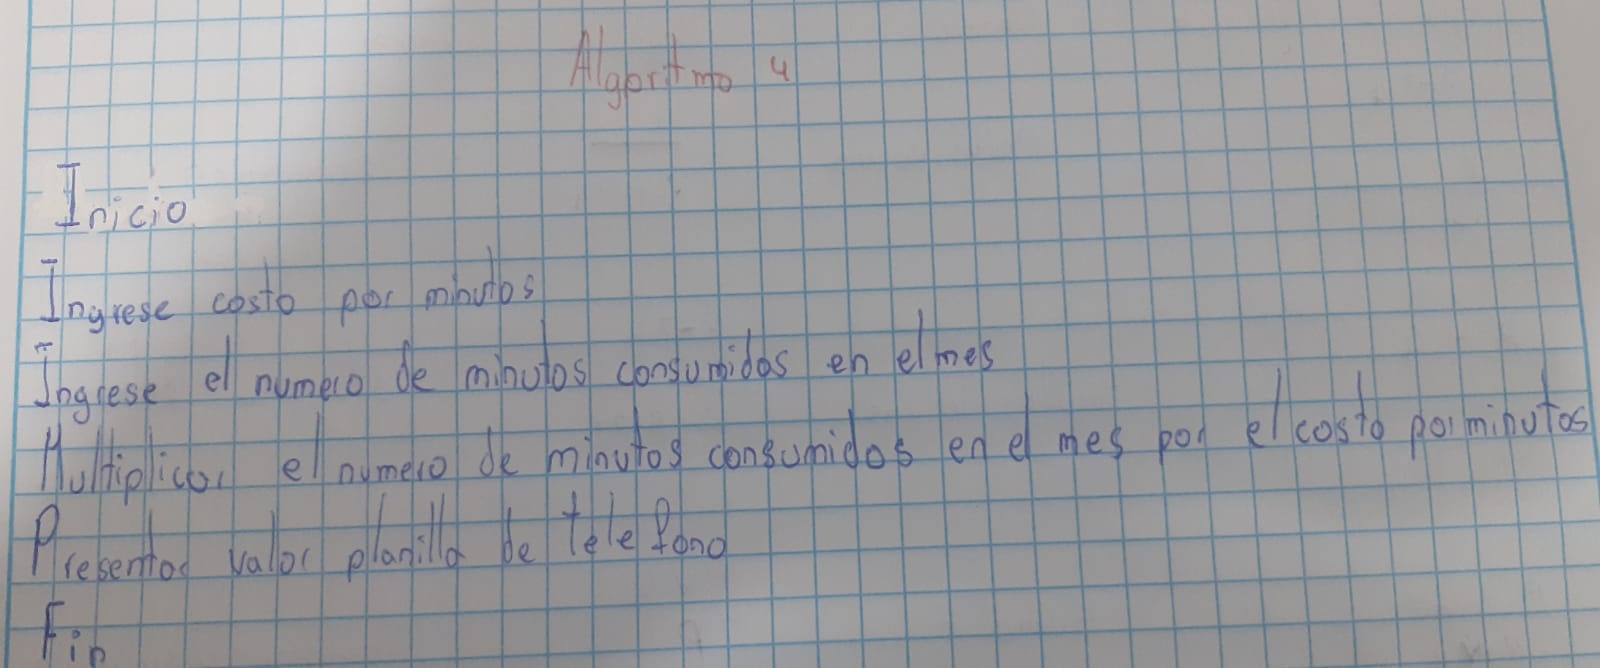 Algoritmo 4
Inicio
Ingrese costo por minutos
Ingrese el numero de minutos consumidos en el mes
Multiplicar el numero de minutos consumidos en el mes por el costo por minutos
Presentar valor planilla de telefono
Fin